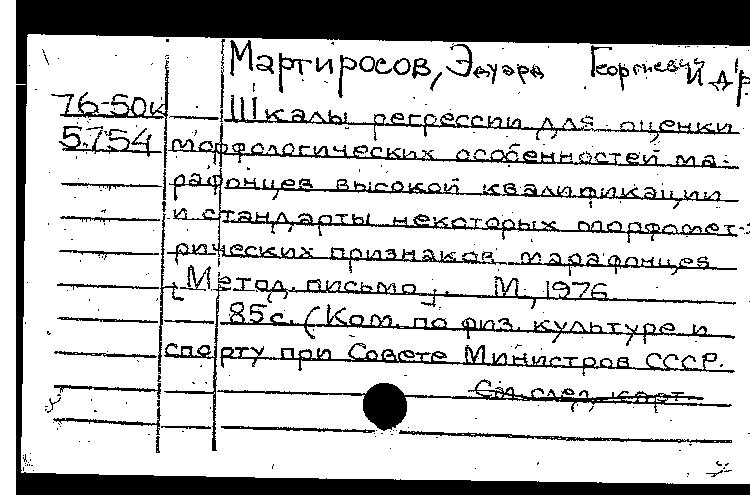 Мартиросов, Эдуард Георгиевич и др
76-50к Шкалы регрессии для оценки
5754 морфологических особенностей ма-
рафонцев высокой квалификации
и стандарты некоторых морфомет-
рических признаков марафонцев
[Метод. письмо]. М., 1976.
85с. (Ком. по физ. культуре и
спорту при Совете Министров СССР.
См. след. карт.